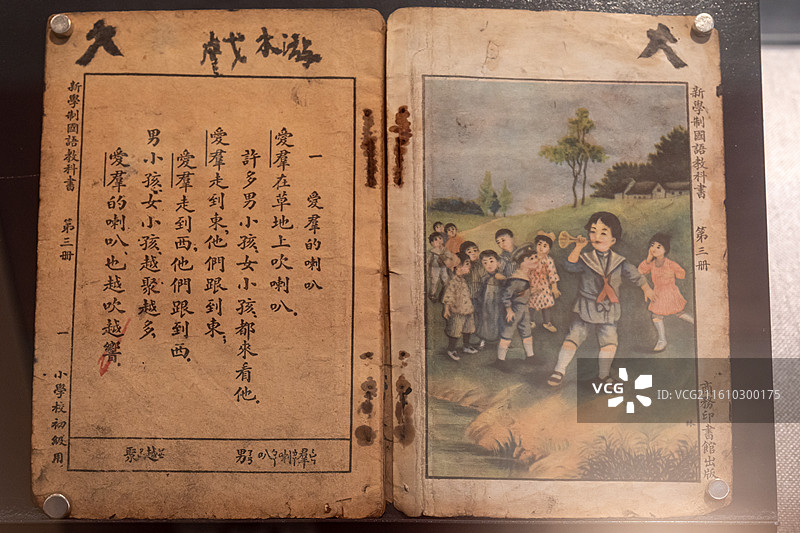 新學制國語教科書 第三冊
商務印書館出版
一 愛羣的喇叭
愛羣在草地上吹喇叭.
許多男小孩、女小孩、都來看他.
愛羣走到東、他們跟到東;
愛羣走到西、他們跟到西.
男小孩、女小孩、越聚越多.
愛羣的喇叭、也越吹越響.
羣 喇 叭 男
越 聚
新學制國語教科書 第三冊 一 小學校初級用
VCG
VCG211610300175